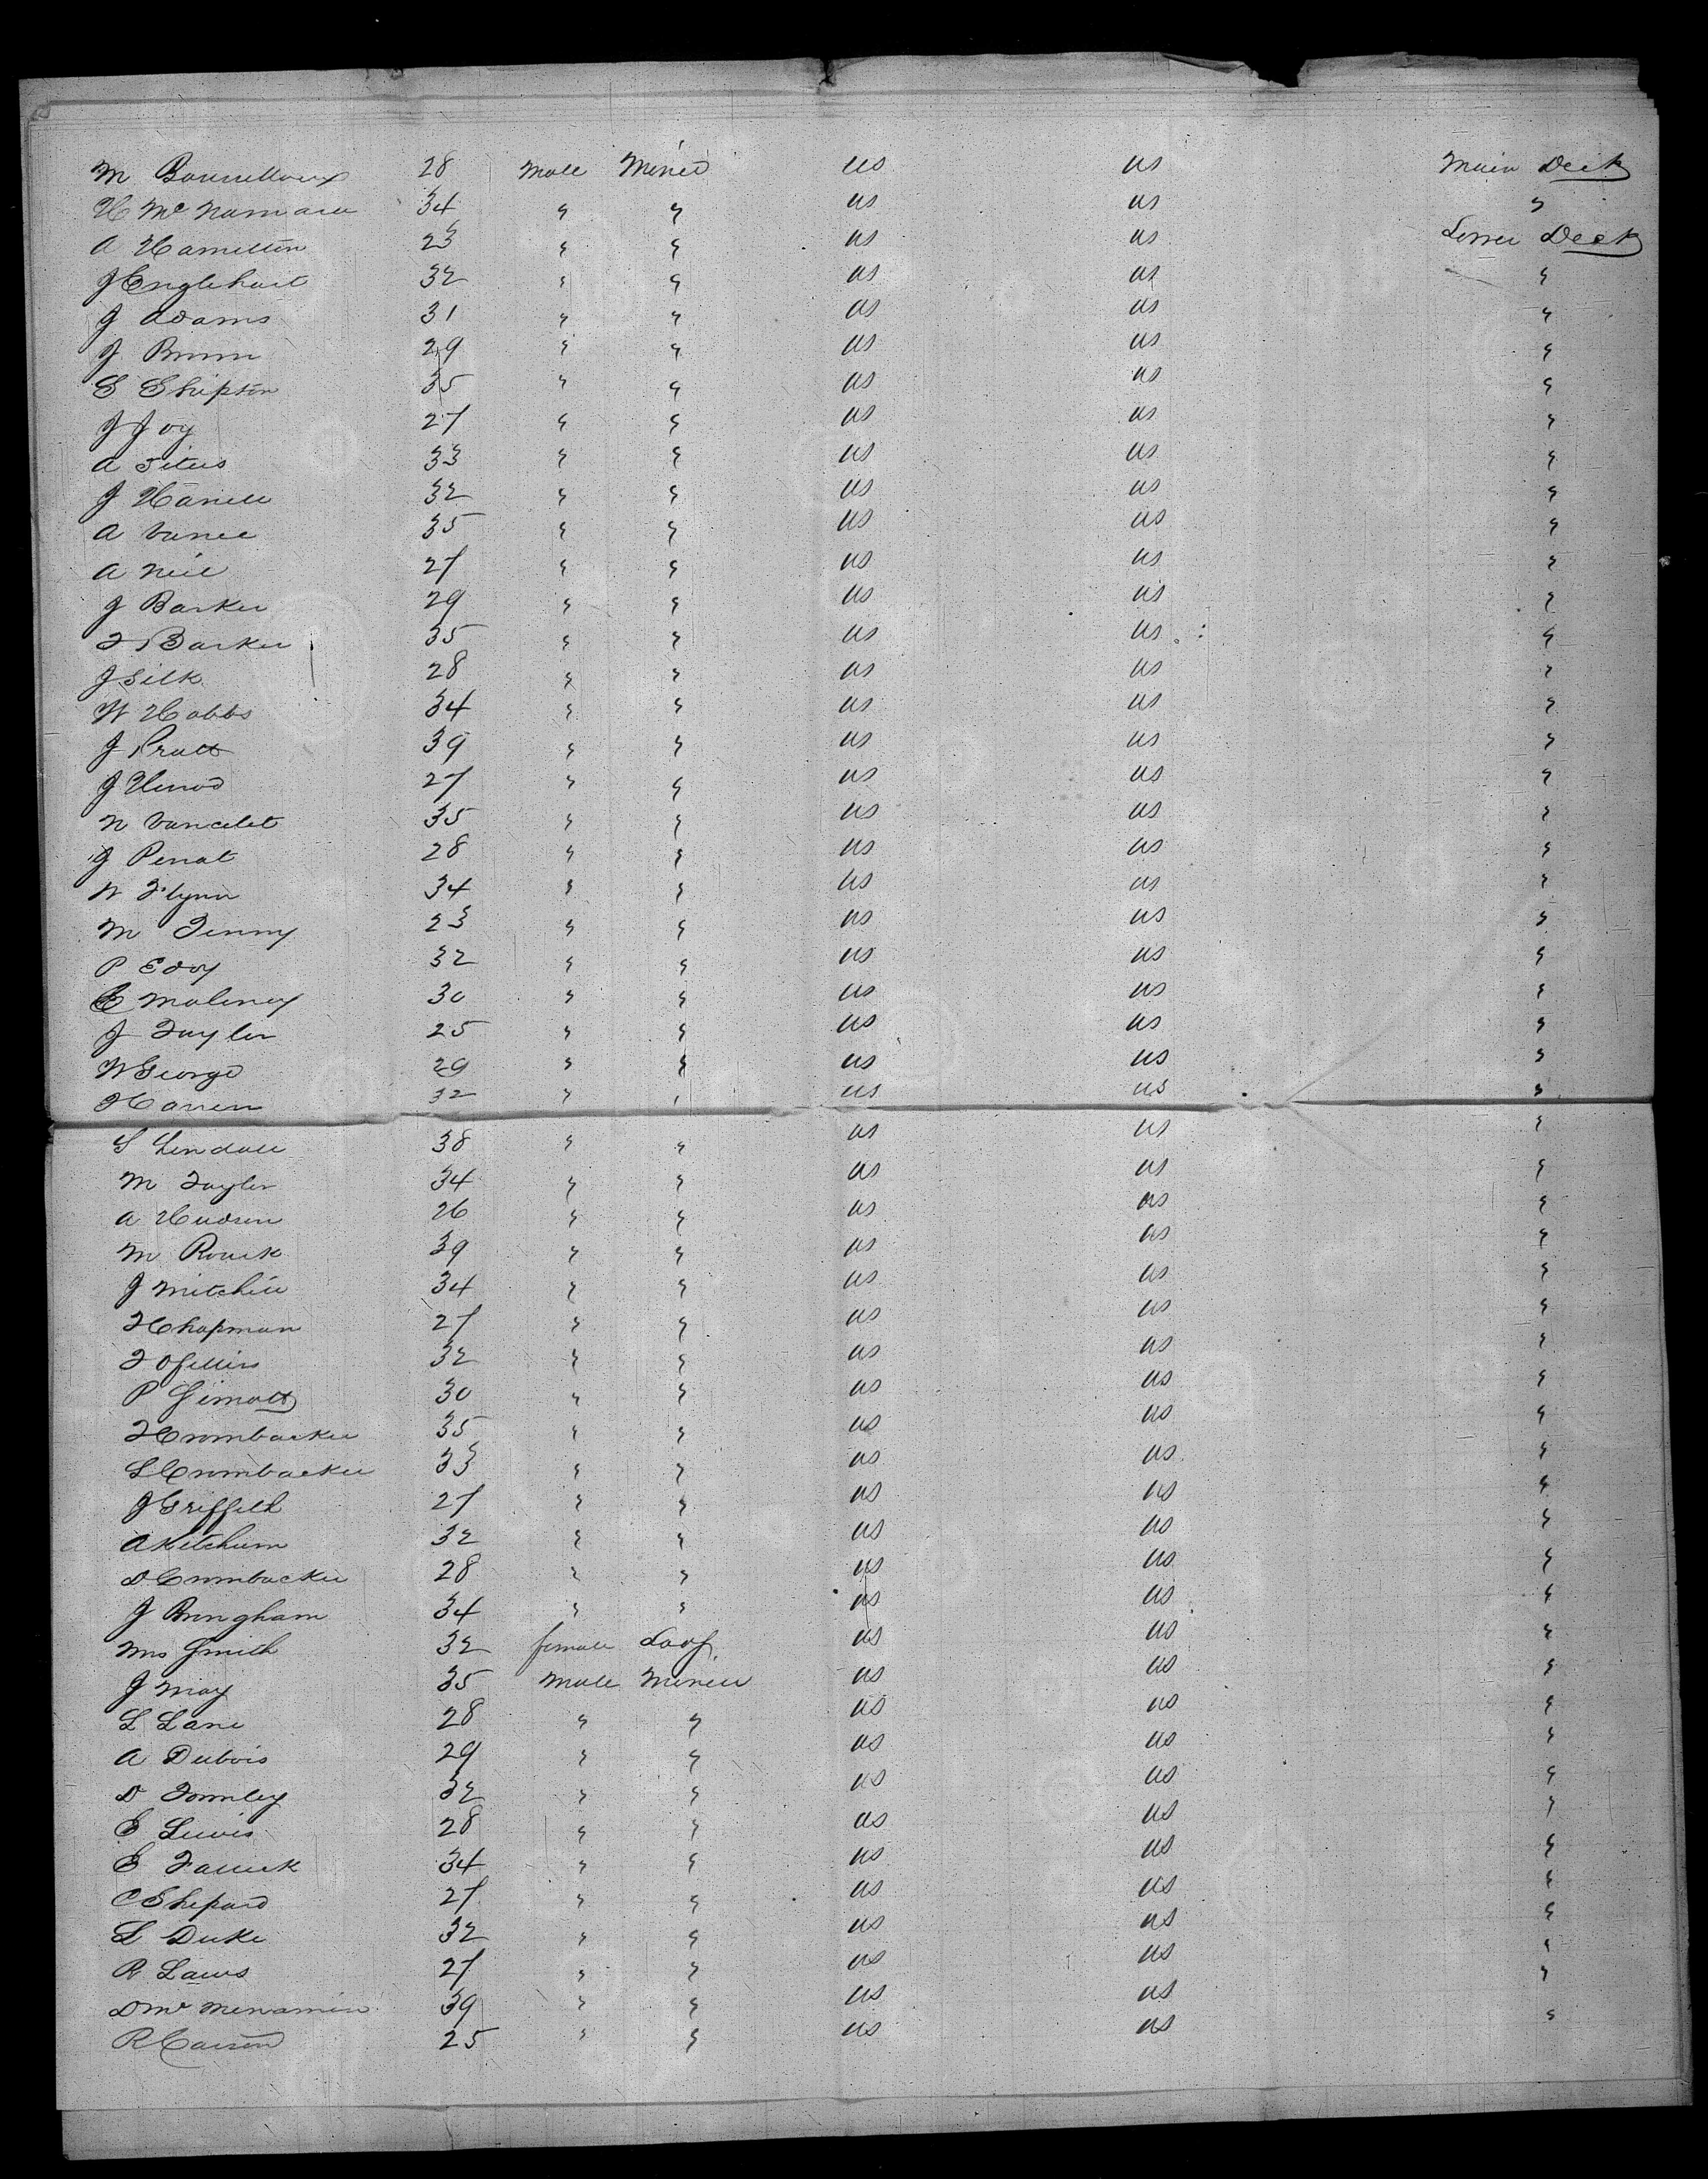 M 28 Male Miner US US Main Deck
H McNamara 34 " " US US "
A Hamilton 23 " " US US Lower Deck
J Englehart 32 " " US US "
J Adams 31 " " US US "
J 29 " " US US "
S Shipton 35 " " US US "
J Joy 27 " " US US "
A Titus 33 " " US US "
J 32 " " US US "
A Vance 35 " " US US "
A Neil 27 " " US US "
J Barker 29 " " US US "
T Barker 35 " " US US "
J Silk 28 " " US US "
W Hobbs 34 " " US US "
J Pratt 39 " " US US "
J 27 " " US US "
N 35 " " US US "
J Penat 28 " " US US "
W Flynn 34 " " US US "
M 23 " " US US "
P Eddy 32 " " US US "
E Maloney 30 " " US US "
J Taylor 25 " " US US "
W George 29 " " US US "
32 " " US US "
S Lindall 38 " " US US "
M Taylor 34 " " US US "
A Hudson 26 " " US US "
M 39 " " US US "
J Mitchell 34 " " US US "
T Chapman 27 " " US US "
T 32 " " US US "
P 30 " " US US "
T Crombacker 35 " " US US "
S Crombacker 33 " " US US "
J Griffeth 27 " " US US "
A Ketchum 32 " " US US "
D Crombacker 28 " " US US "
J Bringham 34 " " US US "
Mrs Smith 32 female Lady US US "
J May 35 Male Miner US US "
L Lane 28 " " US US "
A Dubois 29 " " US US "
D 32 " " US US "
E Lewis 28 " " US US "
E 34 " " US US "
C Shepard 27 " " US US "
L Duke 32 " " US US "
R Laws 27 " " US US "
D McMenamin 39 " " US US "
R Carson 25 " " US US "